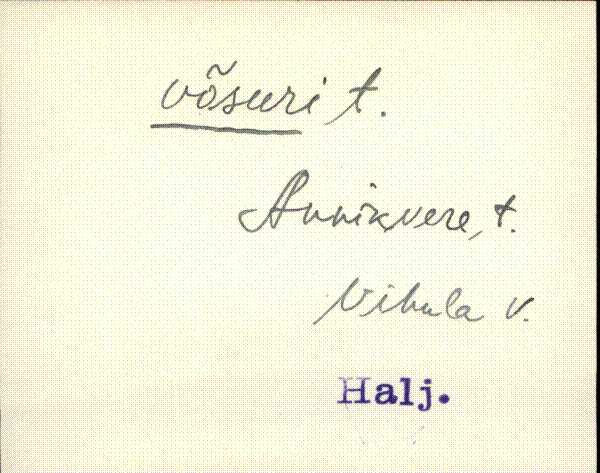 võsuri t.
Annikvere, t.
Vihula v.
Halj.